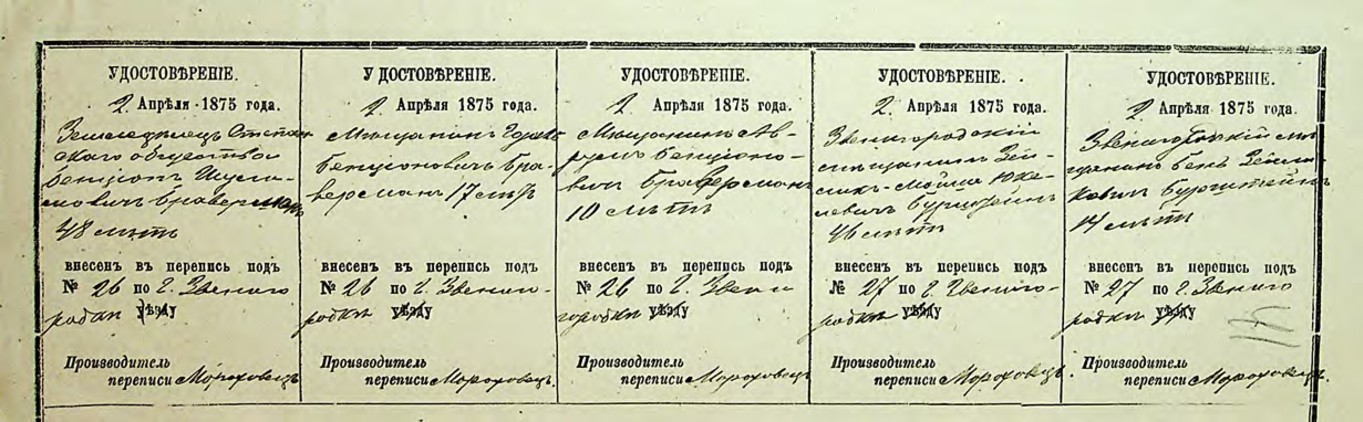 УДОСТОВѢРЕНІЕ.
2 Апрѣля 1875 года.
Земледѣлецъ
скаго общества
Бенціонъ
мовичъ Браверманъ
48 лѣтъ
внесенъ въ перепись подъ
№ 26 по г. Звениго
родки уѣзду
Производитель
переписи Мороховецъ
УДОСТОВѢРЕНІЕ.
2 Апрѣля 1875 года.
Мѣщанинъ
Бенціоновичъ Бра-
верманъ 17 лѣтъ
внесенъ въ перепись подъ
№ 26 по г. Звениго-
родки уѣзду
Производитель
переписи Мороховецъ.
УДОСТОВѢРЕНІЕ.
2 Апрѣля 1875 года.
Мѣщанинъ Ав-
румъ Бенціоно-
вичъ Браверманъ
10 лѣтъ
внесенъ въ перепись подъ
№ 26 по г. Звени
городки уѣзду
Производитель
переписи Мороховецъ
УДОСТОВѢРЕНІЕ.
2 Апрѣля 1875 года.
Звенигородскій
мѣщанинъ Зей-
ликъ-Мойша Юке-
левичъ Бурштейнъ
46 лѣтъ
внесенъ въ перепись подъ
№ 27 по г. Звениго-
родки уѣзду
Производитель
переписи Мороховецъ.
УДОСТОВѢРЕНІЕ.
2 Апрѣля 1875 года.
Звенигородскій мѣ
щанинъ Бенъ Зейли
ковичъ Бурштейнъ
14 лѣтъ
внесенъ въ перепись подъ
№ 27 по г. Звениго
родки уѣзду
Производитель
переписи Мороховецъ.